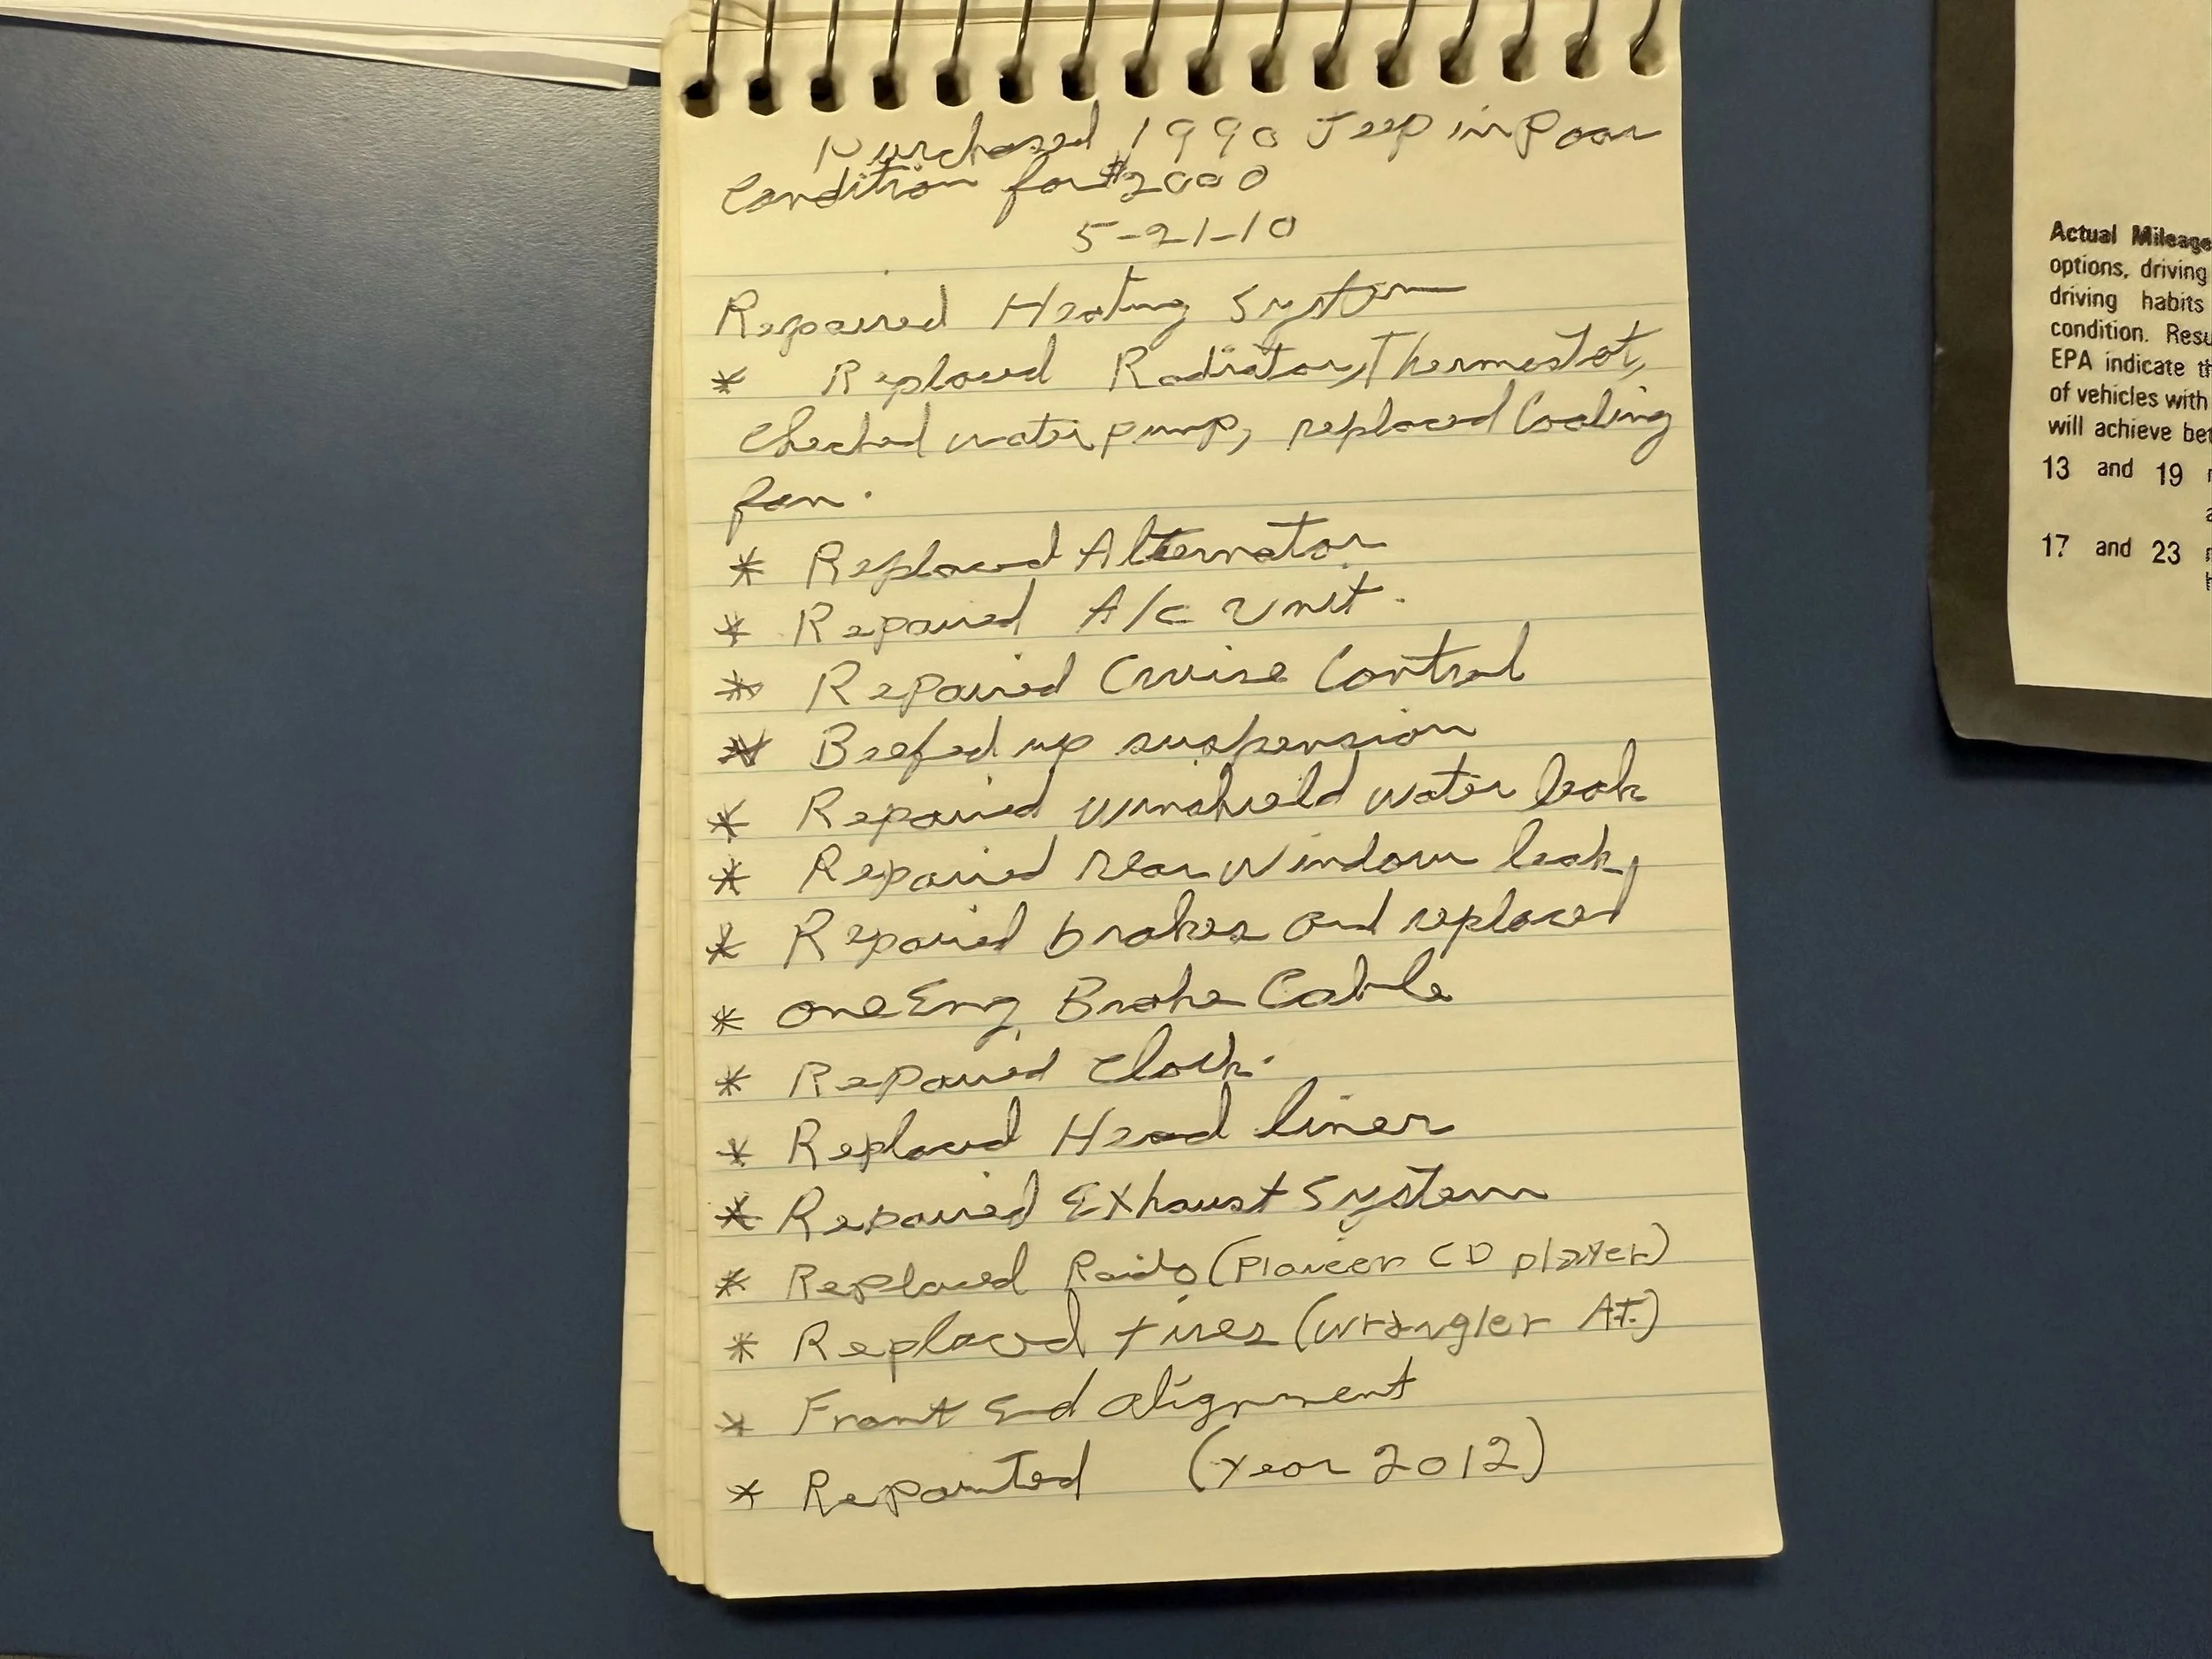 Purchased 1990 Jeep in Poor
Condition for $2000
5-21-10
Repaired Heating System
* Replaced Radiator, Thermostat,
Checked water pump, replaced Cooling
fan.
* Replaced Alternator
* Repaired A/C Unit.
* Repaired Cruise Control
* Beefed up suspension
* Repaired winshield water leak
* Repaired rear window leak,
* Repaired brakes and replaced
* one Emg. Brake Cable
* Repaired Clock.
* Replaced Head liner
* Repaired Exhaust System
* Replaced Raido (Pioneer CD player)
* Replaced tires (Wrangler A.T.)
* Front End alignment
* Repainted (Year 2012)
Actual Mileage
options, driving
driving habits
condition.
EPA indicate
of vehicles with
will achieve
13 and 19
17 and 23